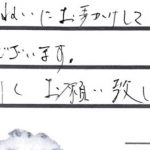 ねいにお手かけして
ございます。
しく お願い致し